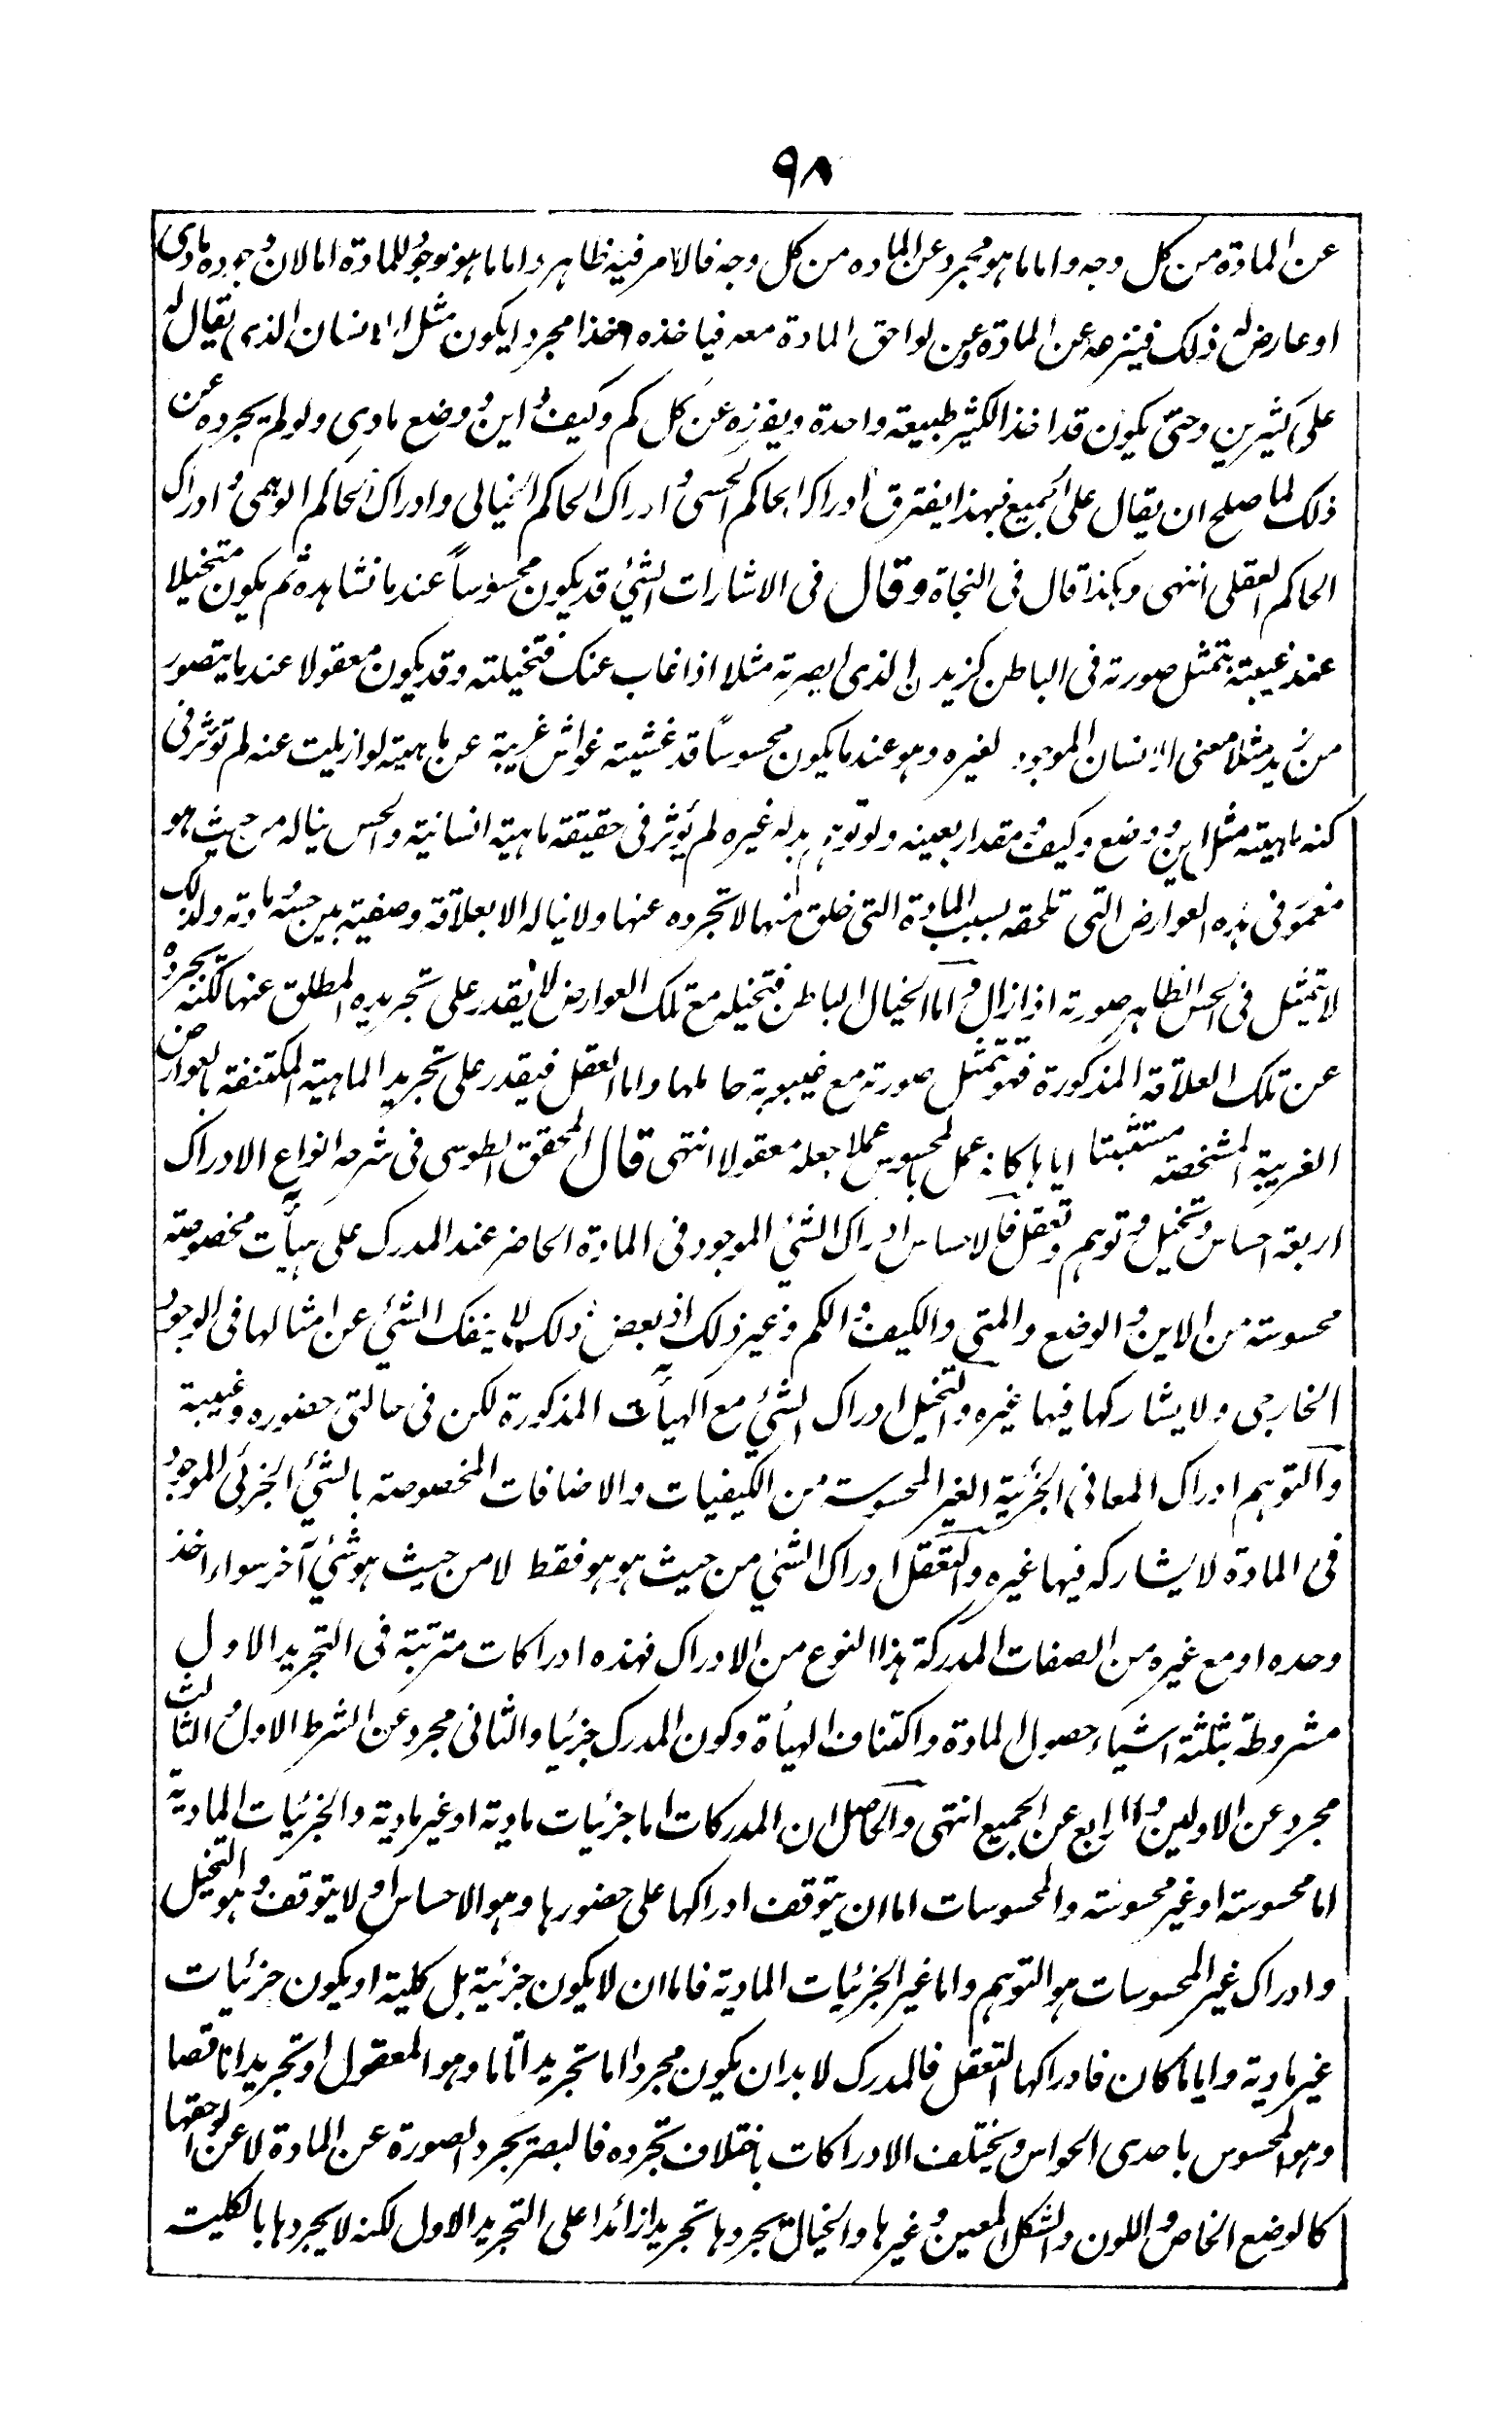 ٩٨
عن المادة من كل وجه واما ما هو مجرد عن المادة من كل وجه فالامر فيه ظاهر واما ما هو موجود للمادة اما لان وجوده مادى
او عارض له ذلك فينزعه عن المادة وعن لواحق المادة معه فياخذه اخذا مجردا يكون مثل الانسان الذى يقال له
على كثيرين وحتى يكون قد اخذ الكثير طبيعة واحدة ويفرزه عن كل كم وكيف و اين و وضع مادى ولو لم يجرده عن
ذلك لما صلح ان يقال على الجميع فبهذا يفترق ادراك الحاكم الحسى و ادراك الحاكم الخيالى وادراك الحاكم الوهمى و ادراك
الحاكم العقلى انتهى وهكذا قال فى النجاة وقال فى الاشارات الشئ قد يكون محسوساً عندما تشاهده ثم يكون متخيلا
عند غيبته بتمثل صورته فى الباطن كزيد ن الذى ابصرته مثلا اذا غاب عنك فتخيلته وقد يكون معقولا عندما يتصور
من زيد مثلا معنى الانسان الموجود لغيره وهو عندما يكون محسوساً قد غشيته غواش غريبة عن ماهيته لو ازيلت عنه لم تؤثر فى
كنه ماهيته مثل اين و وضع وكيف و مقدار بعينه ولو توهم بدله غيره لم يؤثر فى حقيقة ماهية انسانية والحس يناله من حيث هو
مغمور فى هذه العوارض التى تلحقه بسبب المادة التى خلق منها لا تجرده عنها ولا يناله الا بعلاقة وضعية بين حسه و مادته ولذلك
لا يتمثل فى الحس الظاهر صورته اذا زال و اما الخيال الباطن فتخيله مع تلك العوارض لا يقدر على تجريده المطلق عنها لكنه يجرده
عن تلك العلاقة المذكورة فهو يتمثل صورته مع غيبوبة حاملها واما العقل فيقدر على تجريد الماهية المكتنفة بالعوارض
الغريبة المشخصة مستثبتا اياها كانه عمل بالمحسوس عملا جعله معقولا انتهى قال المحقق الطوسى فى شرحه انواع الادراك
اربعة احساس وتخيل و توهم و تعقل فالاحساس ادراك الشئ الموجود فى المادة الحاضر عند المدرك على هيأت مخصوصة
محسوسة من الاين و الوضع والمتى والكيف و الكم وغير ذلك اذ بعض ذلك لا ينفك الشئ عن امثالها فى الوجود
الخارجى ولا يشاركها فيها غيره والتخيل ادراك الشئ مع الهيأت المذكورة لكن فى حالتى حضوره وغيبته
والتوهم ادراك المعانى الجزئية الغير المحسوسة من الكيفيات والاضافات المخصوصة بالشئ الجزئى الموجود
فى المادة لا يشاركه فيها غيره والتعقل ادراك الشئ من حيث هو هو فقط لا من حيث هو شئ آخر سواء اخذ
وحده او مع غيره من الصفات المدركة هذا النوع من الادراك فهذه ادراكات مترتبة فى التجريد الاول
مشروطة بثلثة اشياء حصول المادة واكتناف الهيأة وكون المدرك جزئيا والثانى مجرد عن الشرط الاول و الثالث
مجرد عن الاولين و الرابع عن الجميع انتهى والحاصل ان المدركات اما جزئيات مادية او غير مادية والجزئيات المادية
اما محسوسة او غير محسوسة والمحسوسات اما ان يتوقف ادراكها على حضورها وهو الاحساس او لا يتوقف وهو التخيل
وادراك غير المحسوسات هو التوهم واما غير الجزئيات المادية فاما ان لا يكون جزئية بل كلية او يكون جزئيات
غير مادية واياما كان فادراكها التعقل فالمدرك لا بد ان يكون مجردا اما تجريدا تاما وهو المعقول او تجريدا ناقصا
وهو المحسوس باحدى الحواس ويختلف الادراكات باختلاف تجرده فالبصر يجرد الصورة عن المادة لا عن لواحقها
كالوضع الخاص و اللون والشكل المعين و غيرها والخيال يجردها تجريدا زائدا على التجريد الاول لكنه لا يجردها بالكلية